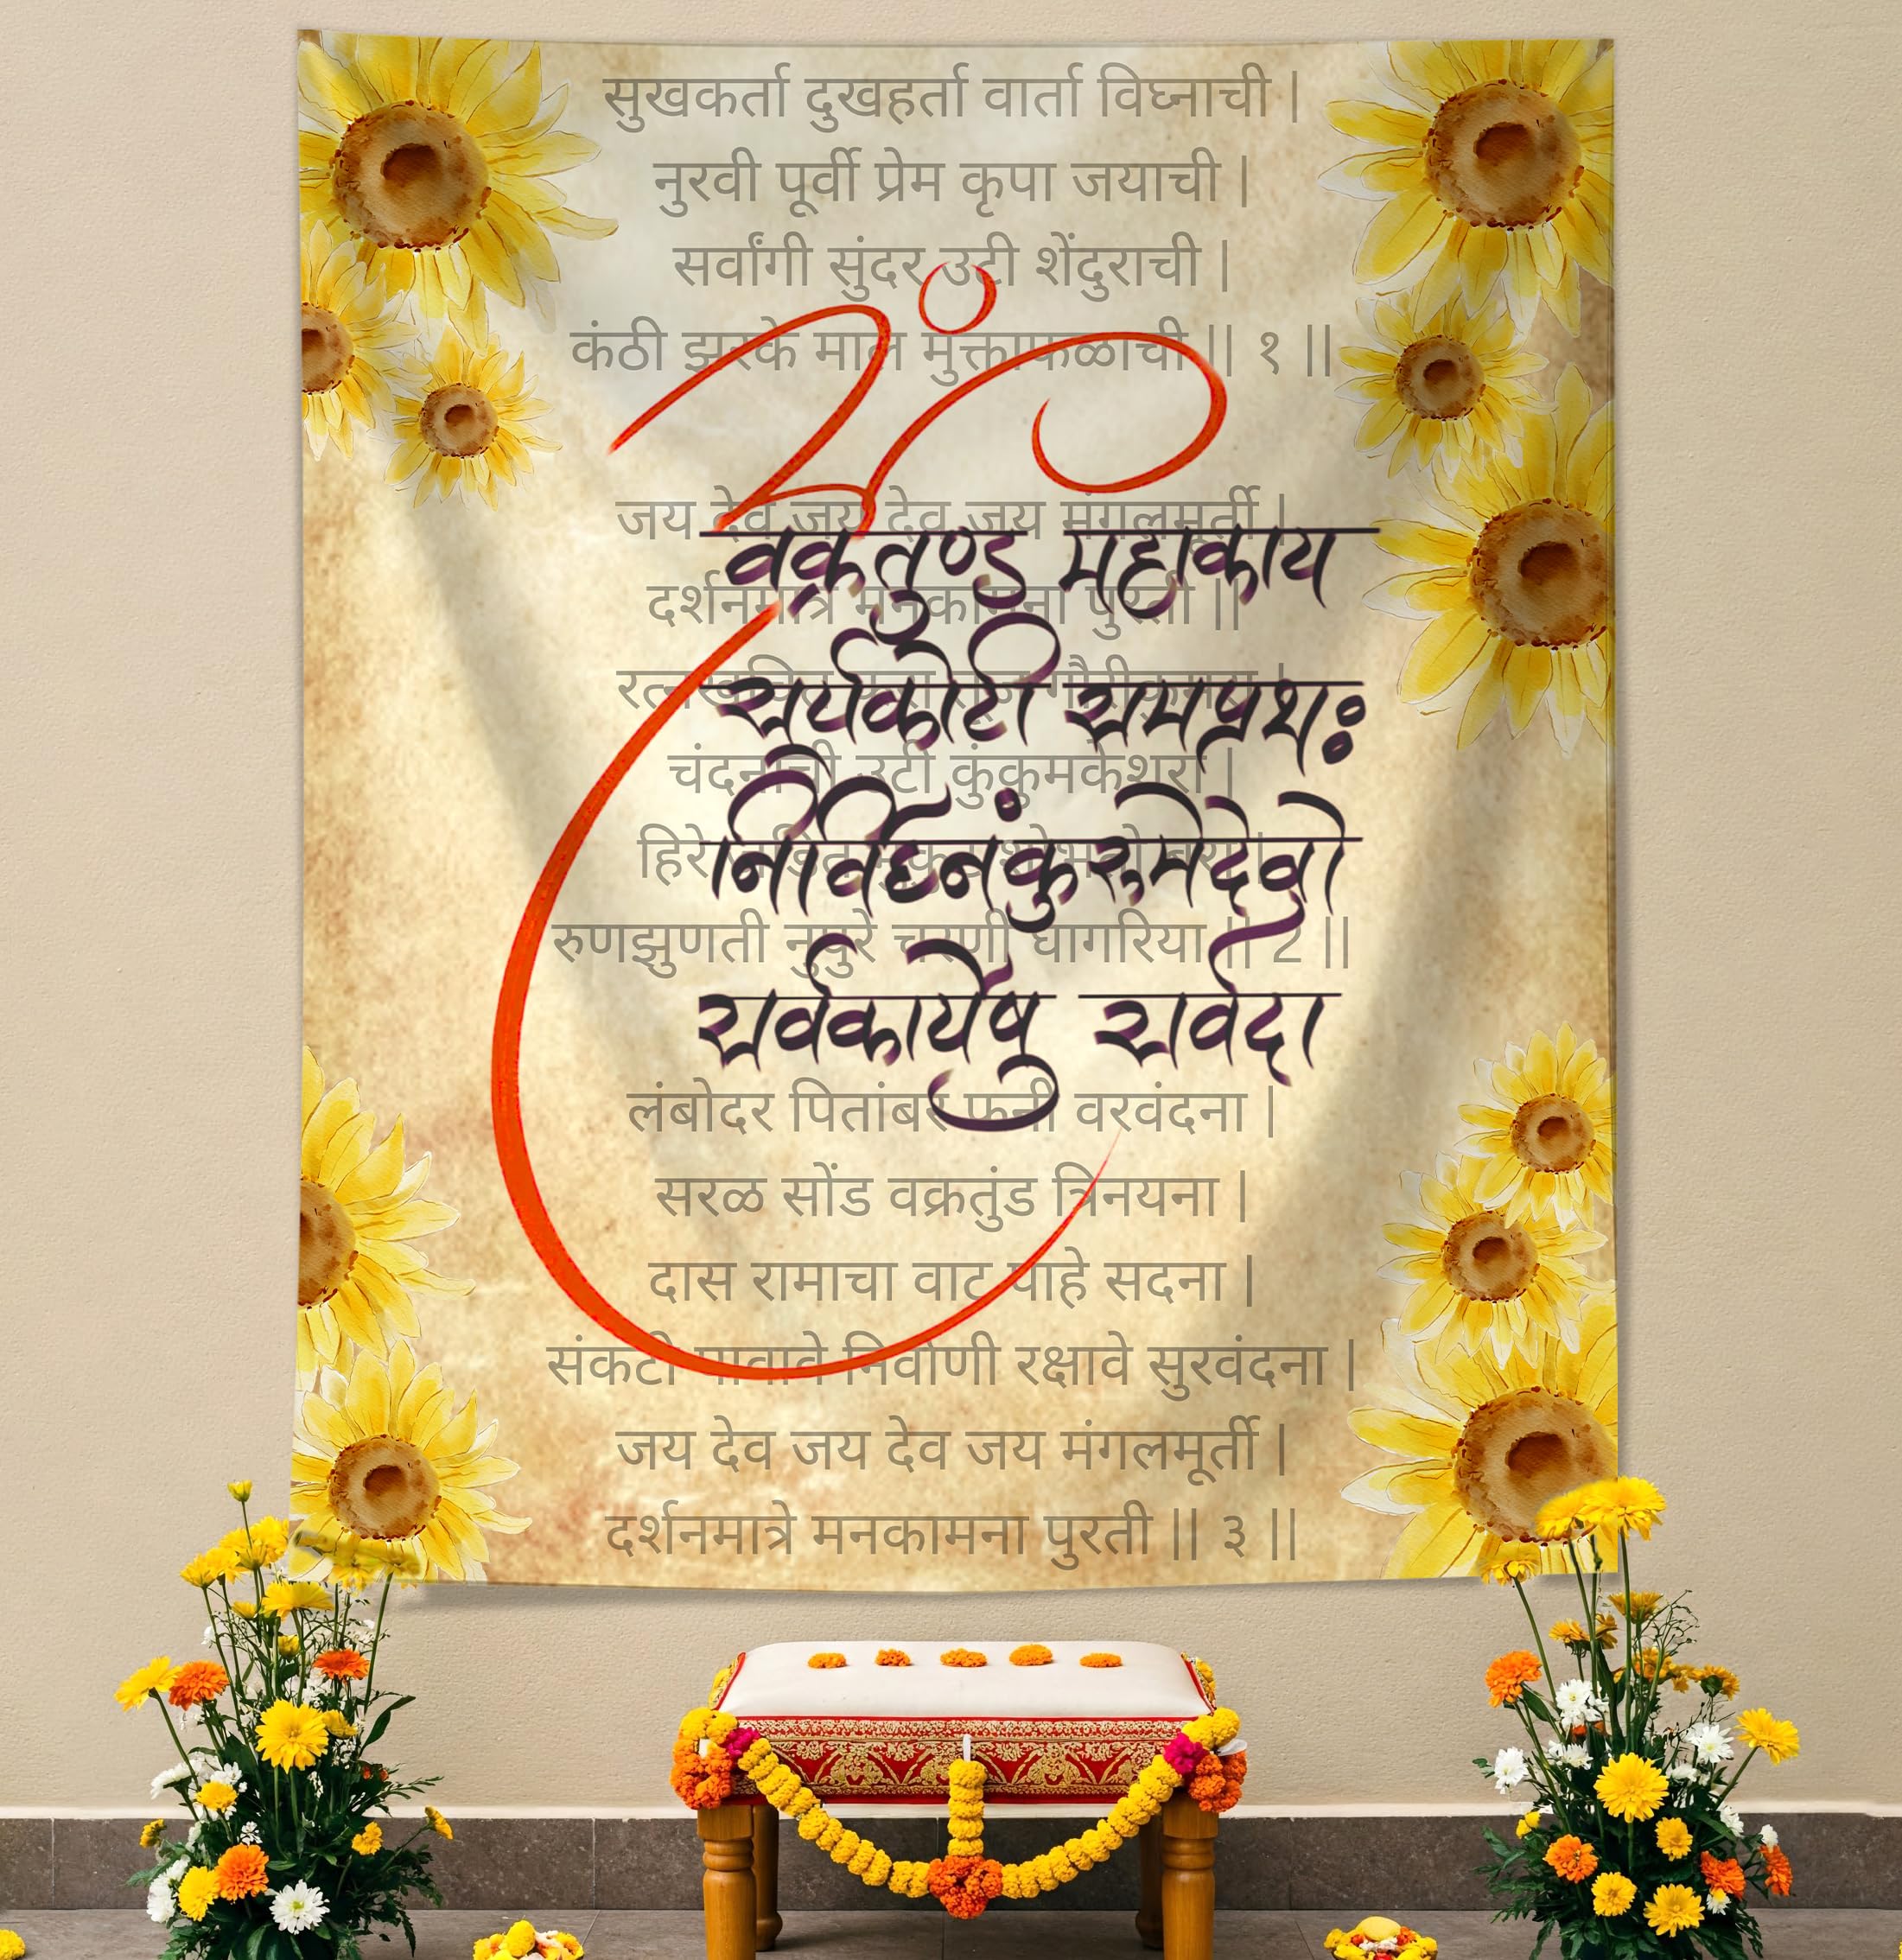 सुखकर्ता दुखहर्ता वार्ता विघ्नाची |
नुरवी पूर्वी प्रेम कृपा जयाची |
सर्वांगी सुंदर उटी शेंदुराची |
कंठी झरके माल मुक्ताफळाची || १ ||
जय देव जय देव जय मंगलमूर्ती |
वक्रतुण्ड महाकाय
दर्शनमात्रे मनकामना पुरती ||
सुर्यकोटी समप्रभः
चंदनाची उटी कुंकुमकेशरा |
निर्विघ्नं कुरु मे देवो
हिरे
रुणझुणती नुपुरे चरणी घागरिया || 2 ||
सर्वकार्येषु सर्वदा
लंबोदर पितांबर फनी वरवंदना |
सरळ सोंड वक्रतुंड त्रिनयना |
दास रामाचा वाट पाहे सदना |
संकटी पावावे निर्वाणी रक्षावे सुरवंदना |
जय देव जय देव जय मंगलमूर्ती |
दर्शनमात्रे मनकामना पुरती || ३ ||